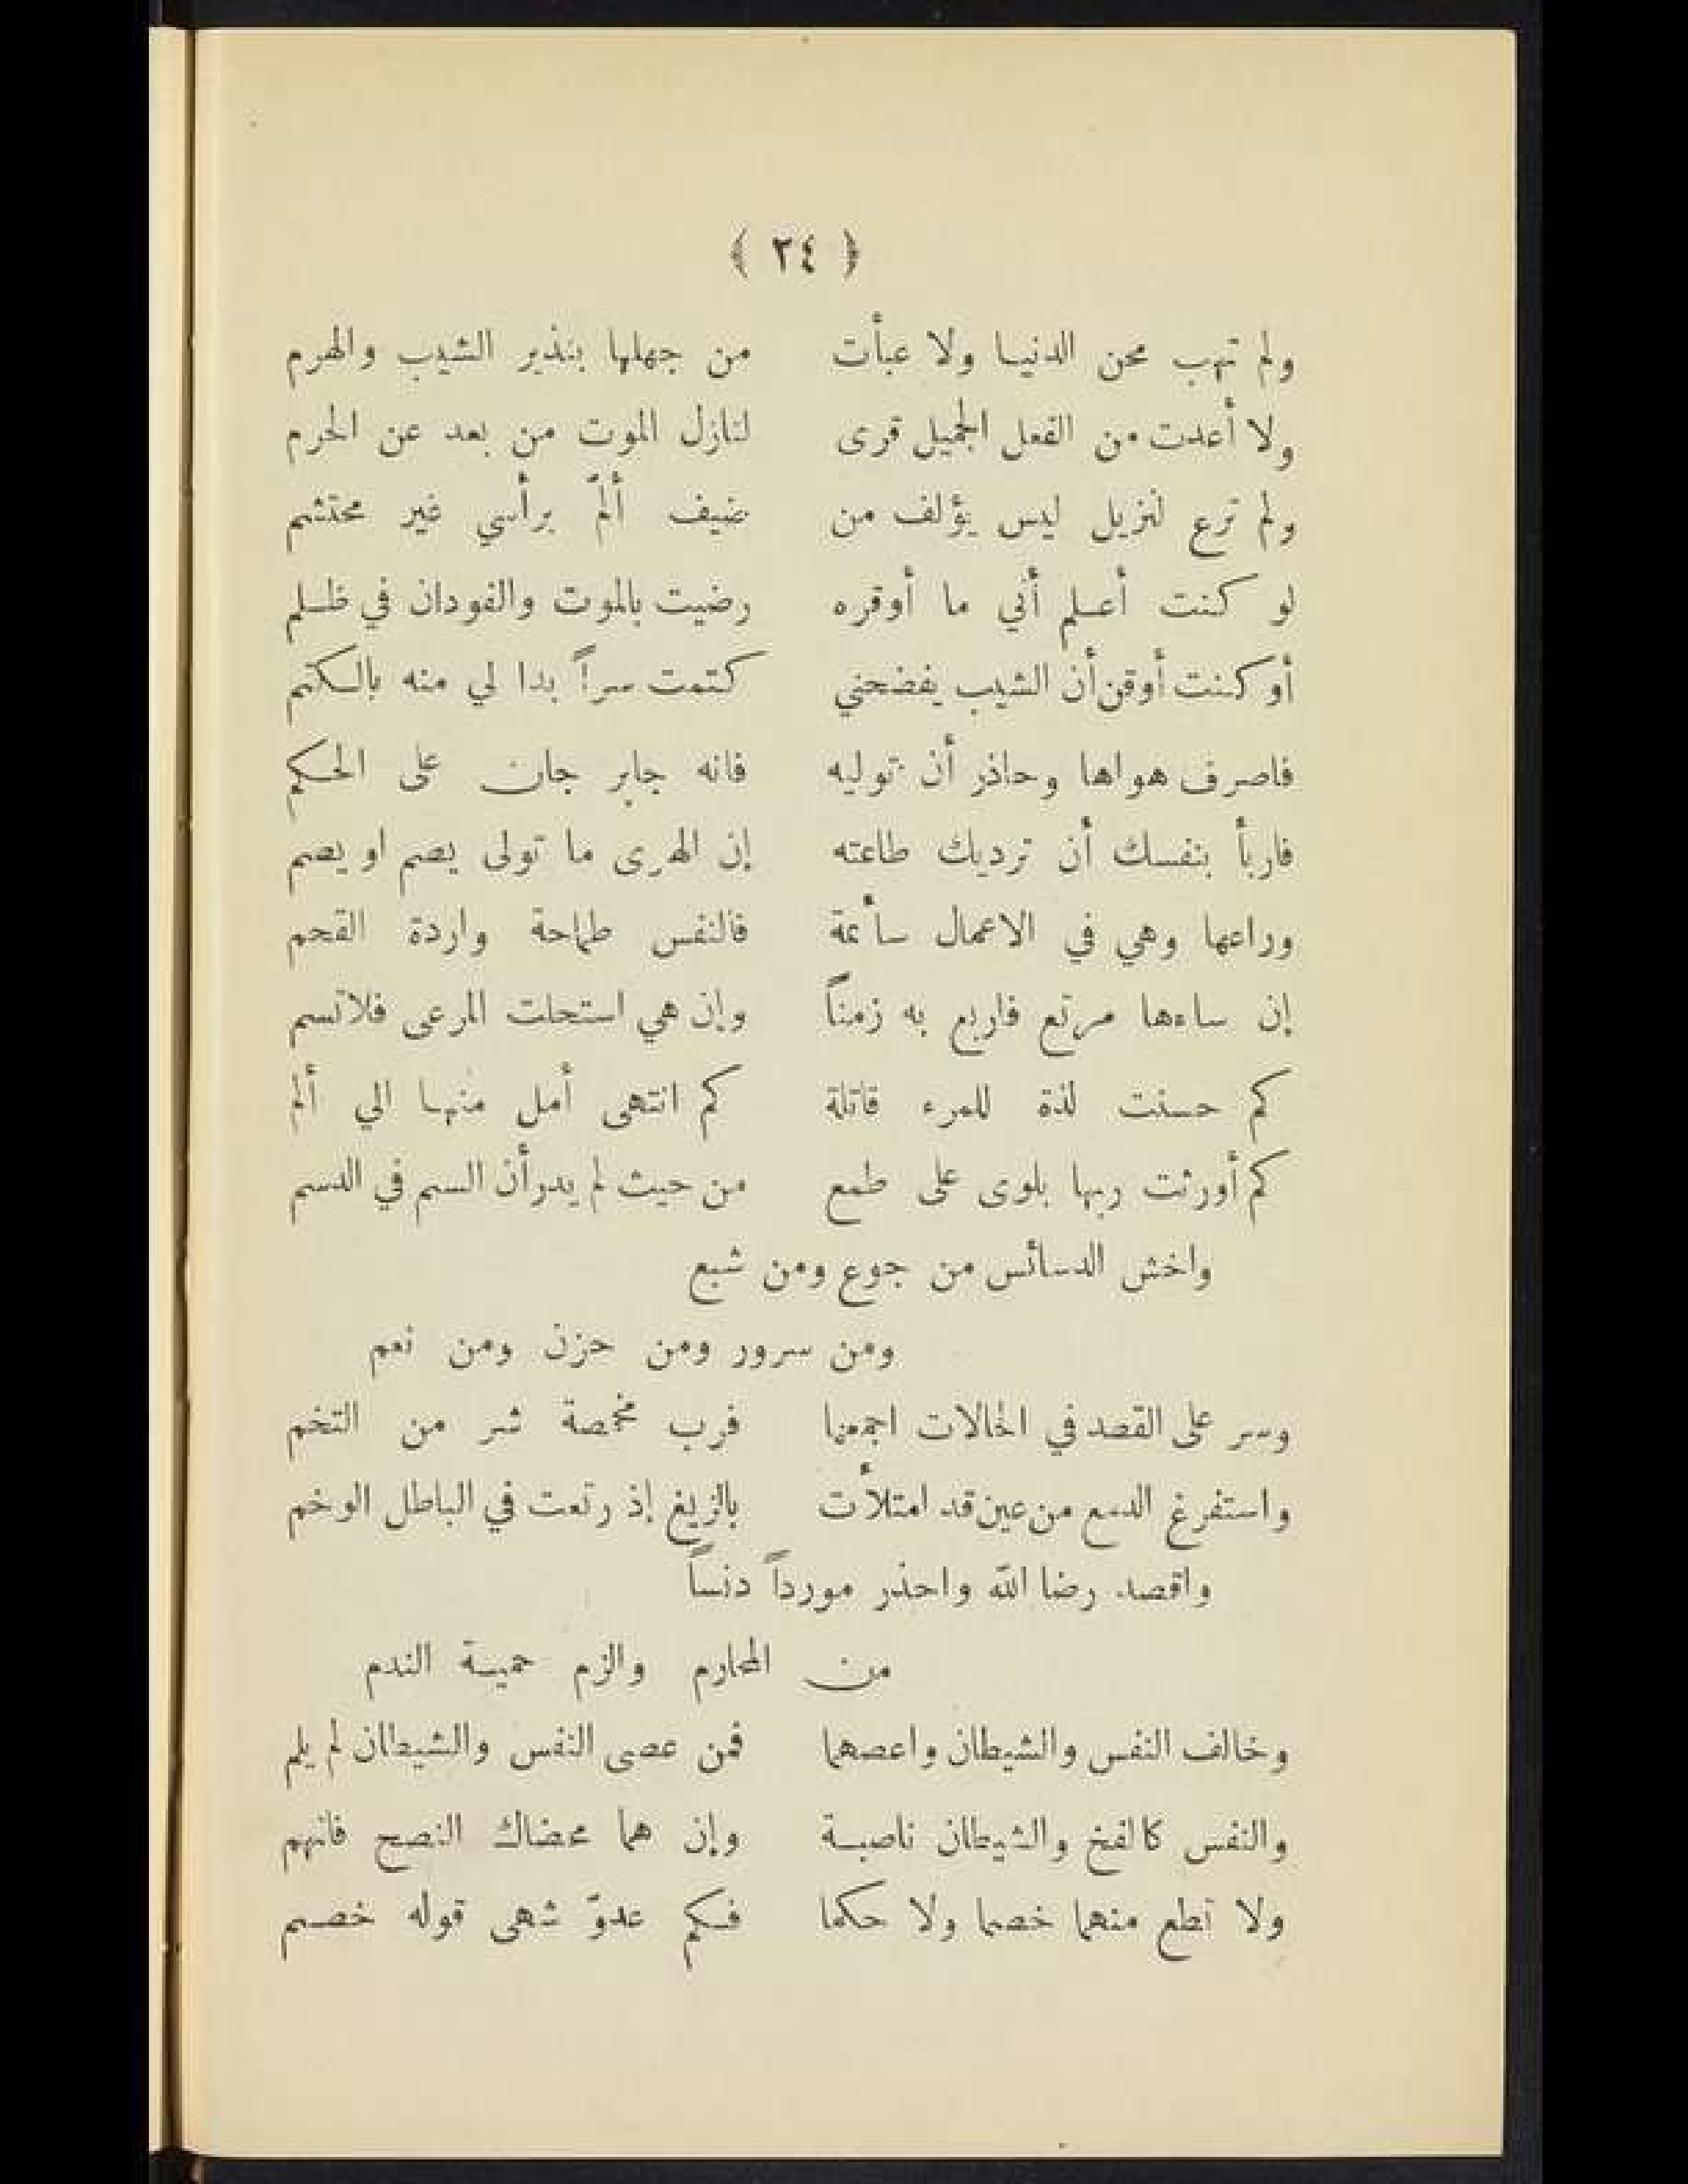 ﴿ ٢٤ ﴾
ولم تهب محن الدنيا ولا عبأت من جهلها بنذير الشيب والهرم
ولا أعدت من الفعل الجميل قرى لنازل الموت من بعد عن الحرم
ولم ترع لنزيل ليس يؤلف من ضيف ألمّ برأسي غير محتشم
لو كنت أعلم أني ما أوقره رضيت بالموت والفودان في ظلم
أو كنت أوقن أن الشيب يفضحني كتمت سراً بدا لي منه بالكتم
فاصرف هواها وحاذر أن توليه فانه جابر جان على الحكم
فاربأ بنفسك أن ترديك طاعته إن الهوى ما تولى يصم او يصم
وراعها وهي في الاعمال سائمة فالنفس طماحة واردة القحم
إن ساءها مرتع فاربع به زمناً وإن هي استحلت المرعى فلا تسم
كم حسنت لذة للمرء قاتلة كم انتهى أمل منها الي ألم
كم أورثت ربها بلوى على طمع من حيث لم يدر أن السم في الدسم
واخش الدسائس من جوع ومن شبع
ومن سرور ومن حزن ومن نعم
وسر على القصد في الحالات اجمعها فرب مخمصة شر من التخم
واستفرغ الدمع من عين قد امتلأت بالزيغ إذ رتعت في الباطل الوخم
واقصد رضا الله واحذر مورداً دنساً
من المحارم والزم حمية الندم
وخالف النفس والشيطان واعصهما فمن عصى النفس والشيطان لم يلم
والنفس كالفخ والشيطان ناصبة وإن هما محضاك النصح فاتهم
ولا تطع منهما خصما ولا حكما فكم عدوّ شهى قوله خصم